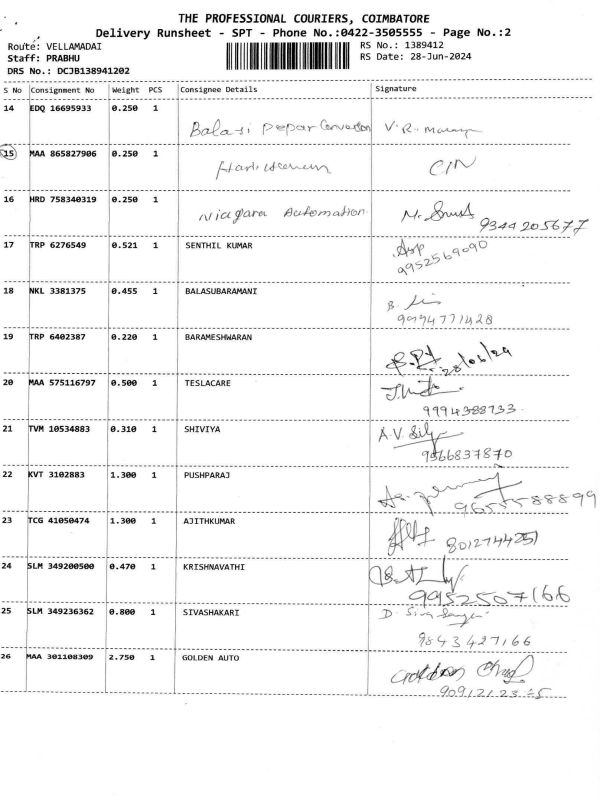 THE PROFESSIONAL COURIERS, COIMBATORE
Delivery Runsheet - SPT - Phone No.:0422-3505555 - Page No.:2
Route: VELLAMADAI RS No.: 1389412
Staff: PRABHU RS Date: 28-Jun-2024
DRS No.: DCJB138941202
S No Consignment No Weight PCS Consignee Details Signature
14 EDQ 16695933 0.250 1
V.R.
15 MAA 865827906 0.250 1
16 HRD 758340319 0.250 1
Niagara Automation
9344205677
17 TRP 6276549 0.521 1 SENTHIL KUMAR
9952569090
18 NKL 3381375 0.455 1 BALASUBARAMANI
9994771428
19 TRP 6402387 0.220 1 BARAMESHWARAN
28/06/24
20 MAA 575116797 0.500 1 TESLACARE
9994388733
21 TVM 10534883 0.310 1 SHIVIYA
A.V.
9566837870
22 KVT 3102883 1.300 1 PUSHPARAJ
9655588899
23 TCG 41050474 1.300 1 AJITHKUMAR
8012744251
24 SLM 349200500 0.470 1 KRISHNAVATHI
9952507166
25 SLM 349236362 0.800 1 SIVASHAKARI
9843427166
26 MAA 301108309 2.750 1 GOLDEN AUTO